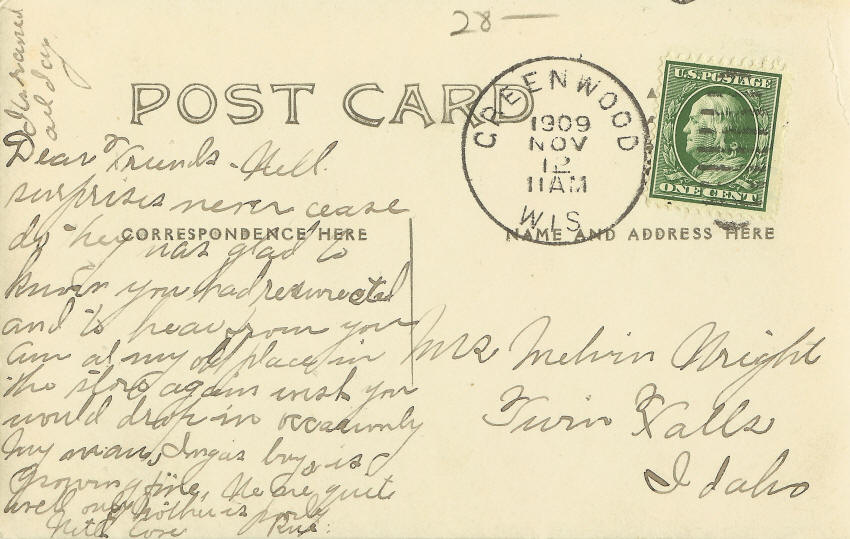 28 —
It rained
all day
POST CARD
GREENWOOD
1909
NOV
12
11AM
WIS.
U.S. POSTAGE
ONE CENT
CORRESPONDENCE HERE
NAME AND ADDRESS HERE
Dear Friends - Well
surprises never cease
do they was glad to
know you had resurrected
and to hear from you
am at my old place in
the store again wish you
would drop in occasionly
My man, Ingas boy, is
growing fine, We are quite
well only Mother is poorly
With Love
Mrs Melvin Wright
Twin Falls
Idaho